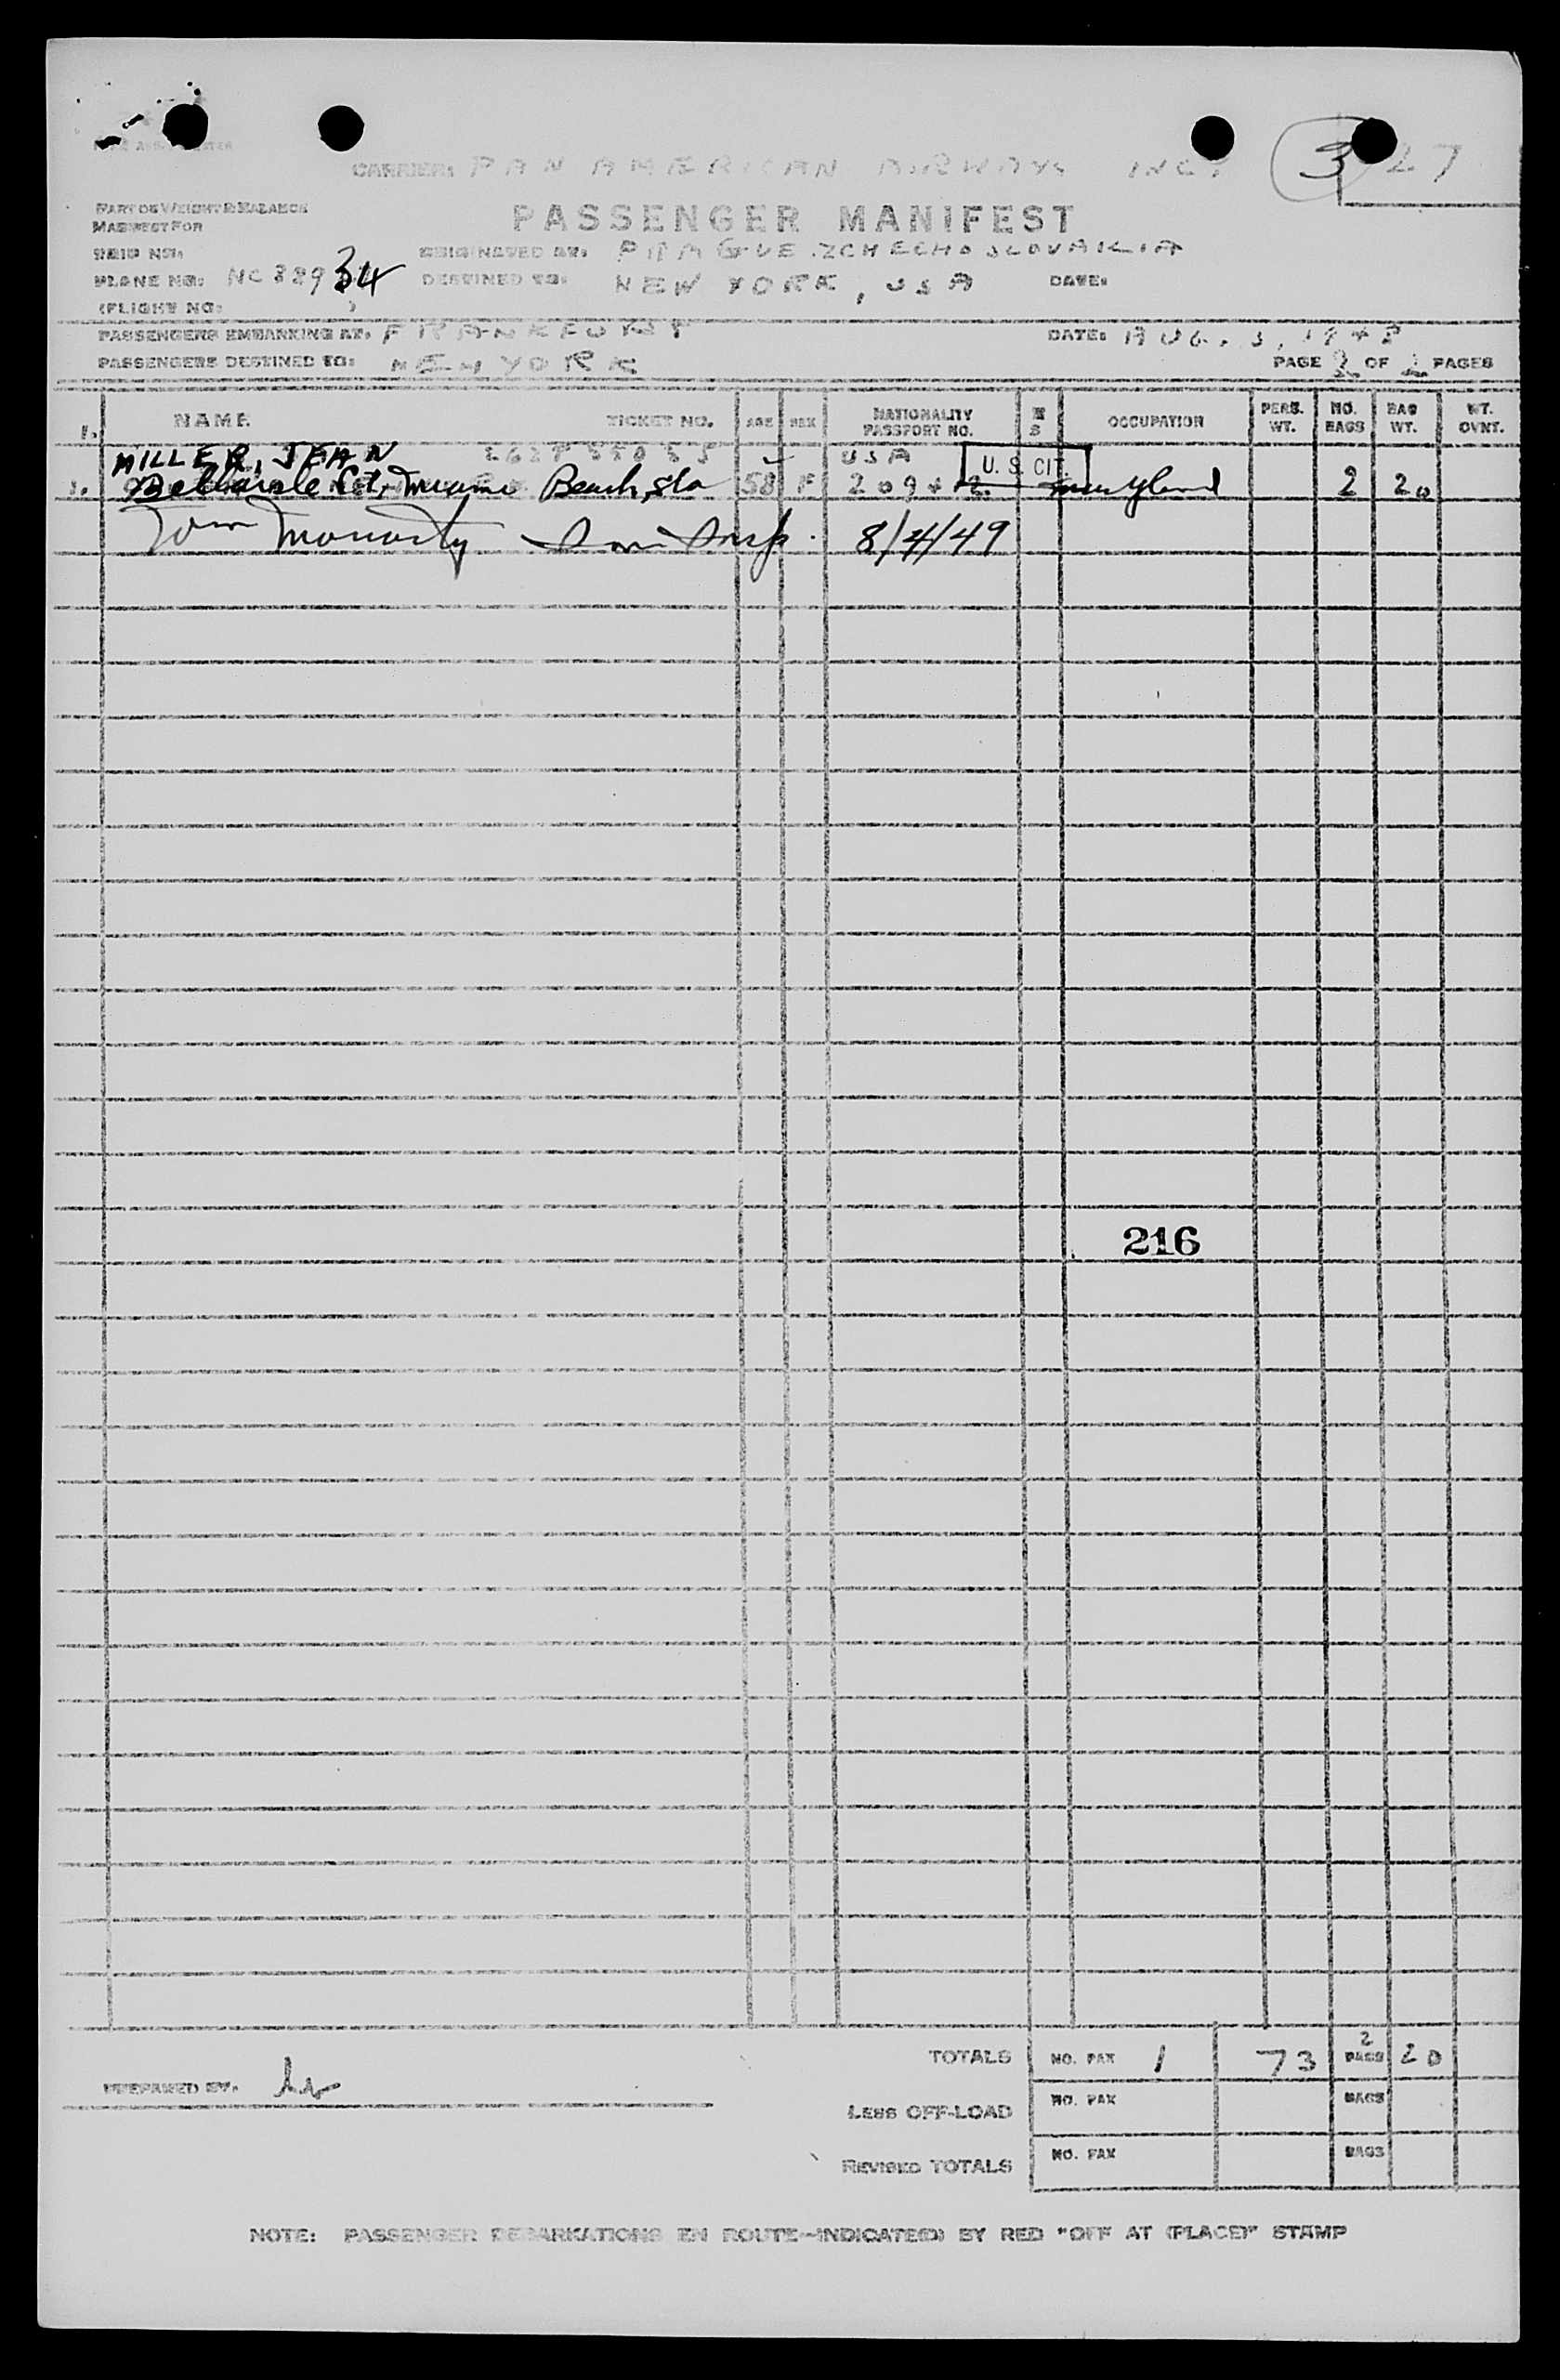 CARRIER: PAN AMERICAN AIRWAYS INC. 3 27
PART OF WEIGHT & BALANCE
MANIFEST FOR
PASSENGER MANIFEST
TRIP NO:
ORIGINATED AT: PRAGUE ZCHECHOSLOVAKIA
PLANE NO: NC 889 34
DESTINED TO: NEW YORK, USA DATE:
(FLIGHT NO: )
PASSENGERS EMBARKING AT: FRANKFURT DATE: AUG. 3, 194
PASSENGERS DESTINED TO: NEW YORK PAGE 2 OF 2 PAGES
NAME TICKET NO. AGE SEX NATIONALITY PASSPORT NO. M S OCCUPATION PERS. WT. NO. BAGS BAG WT. WT. OVNT.
1. MILLER, JEAN USA U. S. CIT.
Miami Beach, Fla 58 F Maryland 2 20
Tom Moriarty Insp. 8/4/49
216
TOTALS NO. PAX 1 73 2 BAGS 20
PREPARED BY:
LESS OFF-LOAD NO. PAX BAGS
REVISED TOTALS NO. PAX BAGS
NOTE: PASSENGER DEBARKATIONS EN ROUTE—INDICATE(D) BY RED "OFF AT (PLACE)" STAMP